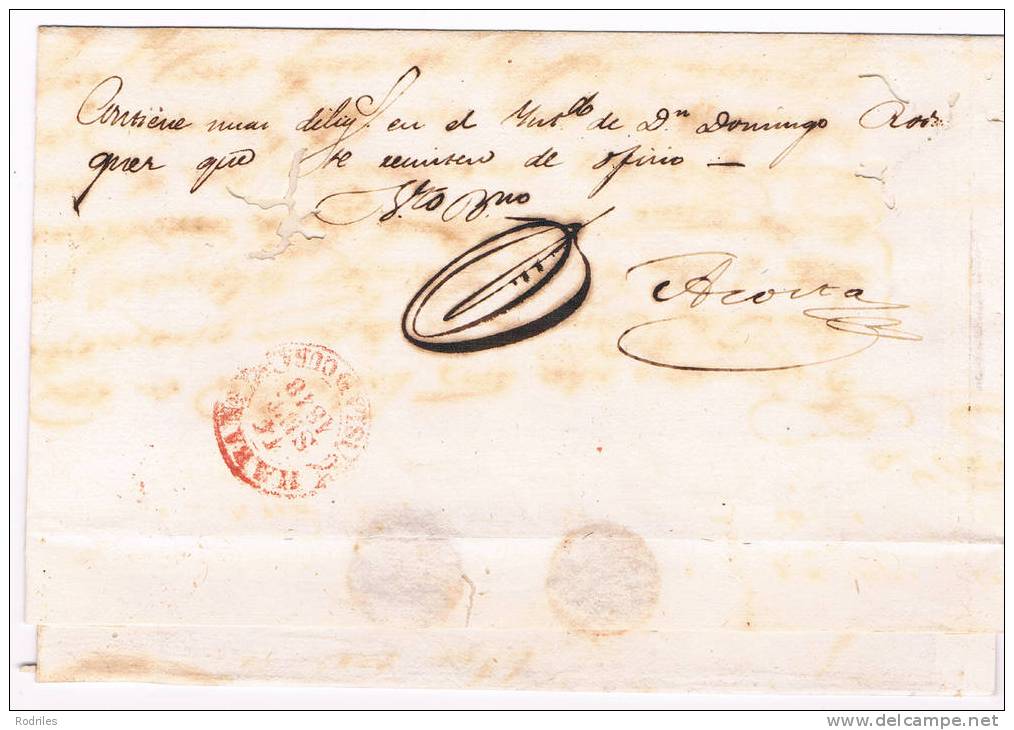 Contiene unas dilig.s en el Int.do de D.n Domingo Rodri
guez que se remiten de oficio —
Acosta
HABANA
ISLA DE CUBA
1848
Rodriles
www.delcampe.net